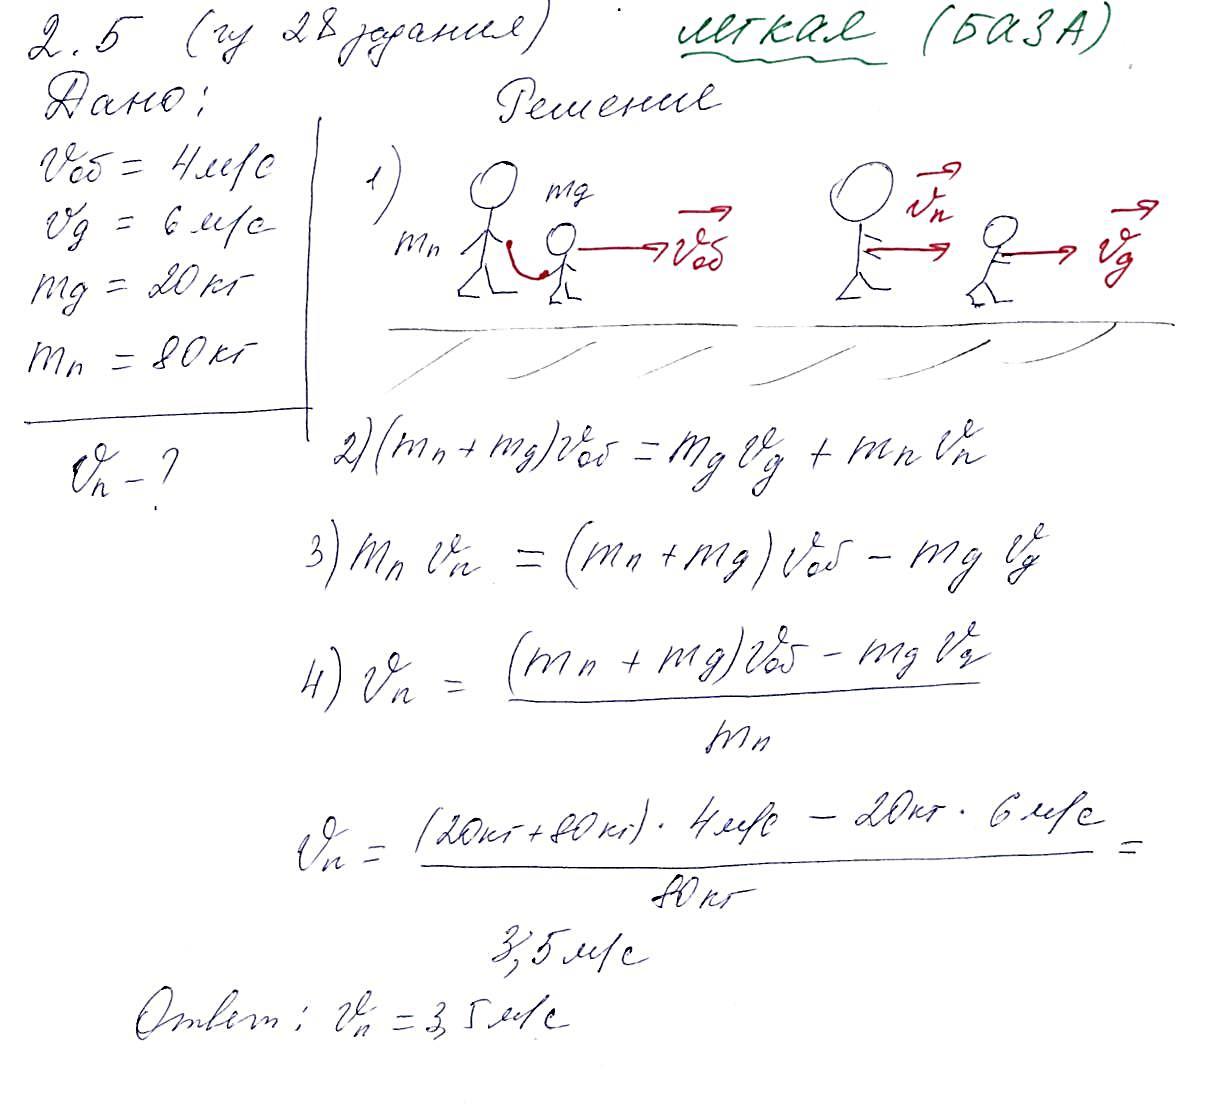 2.5 (гу 28 задания) легкая (БАЗА)
Дано:
vоб = 4 м/с
vд = 6 м/с
mд = 20 кг
mп = 80 кг
vп - ?
Решение
1)
mп mд vоб vп vд
2) (mп + mд) vоб = mд vд + mп vп
3) mп vп = (mп + mд) vоб - mд vд
4) vп = (mп + mд) vоб - mд vд
mп
vп = (20 кг + 80 кг) · 4 м/с - 20 кг · 6 м/с =
80 кг
3,5 м/с
Ответ: vп = 3,5 м/с